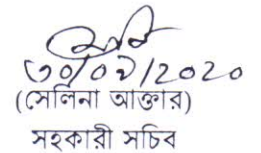 ৩০/০৯/2020
(সেলিনা আক্তার)
সহকারী সচিব